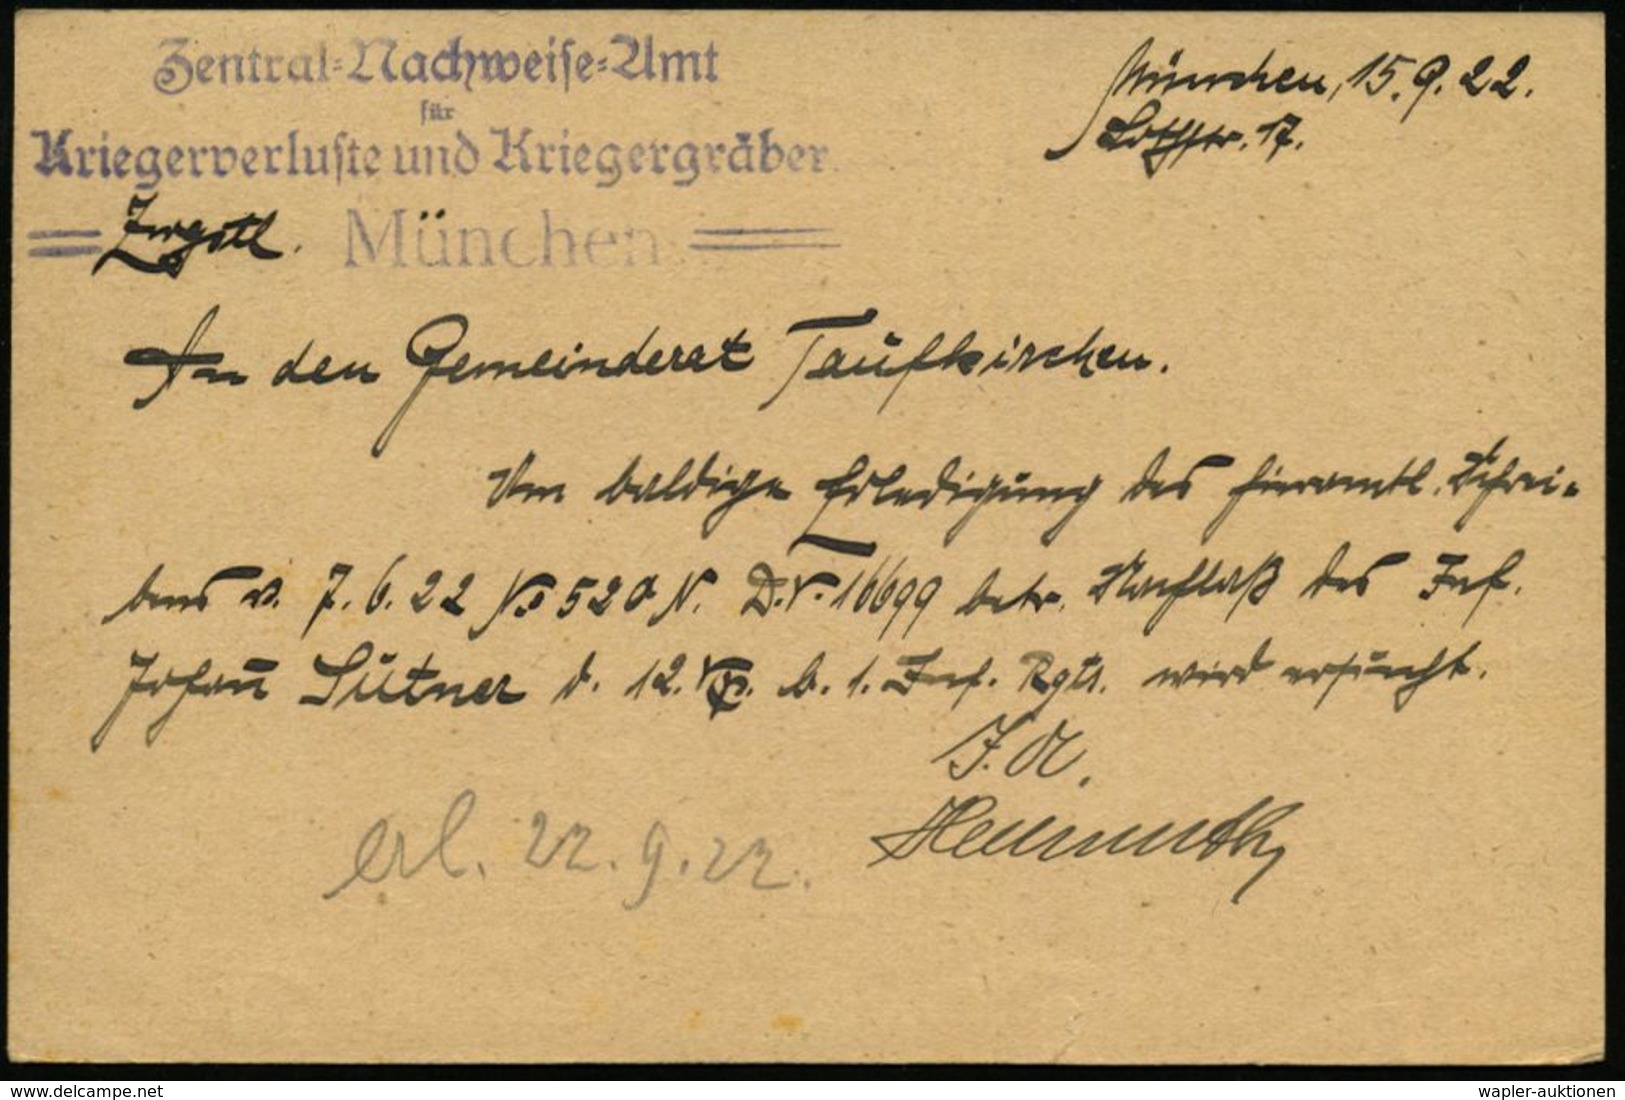 Zentral-Nachweise-Amt
für
Kriegerverluste und Kriegergräber
Zwgstl. München
München, 15.9.22.
Lothstr. 17.
An den Gemeinderat Taufkirchen.
Um baldige Erledigung des hieramtl. Schrei-
bens v. 7.6.22 No 520 N. D.V. 16699 betr. Nachlaß des Inf.
Johann Sutner d. 12. b. 1. Inf. Rgts. wird ersucht.
I. A.
erl. 22.9.22.
delcampe.net
wapler-auktionen